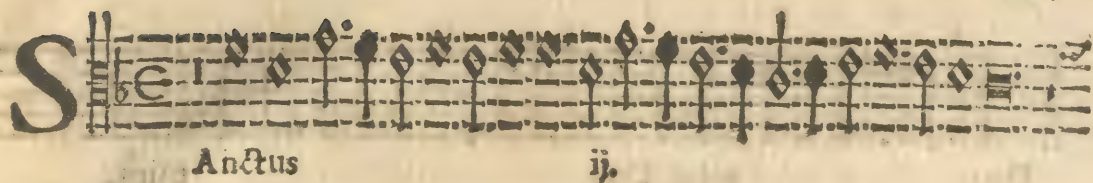 S
Anctus ij.